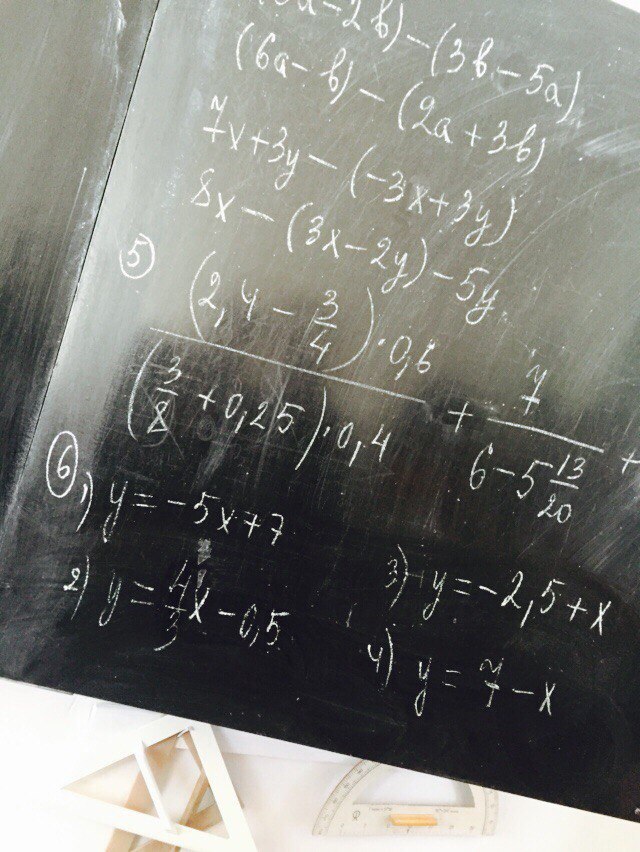 a-2b)-(3b-5a)
(6a-b)-(2a+3b)
7x+3y-(-3x+3y)
8x-(3x-2y)-5y
5 (2,4-3/4)·0,6 / (3/8+0,25)·0,4 + 7 / 6-5 13/20 +
6 1) y=-5x+7
2) y=4/3x-0,5
3) y=-2,5+x
4) y=7-x